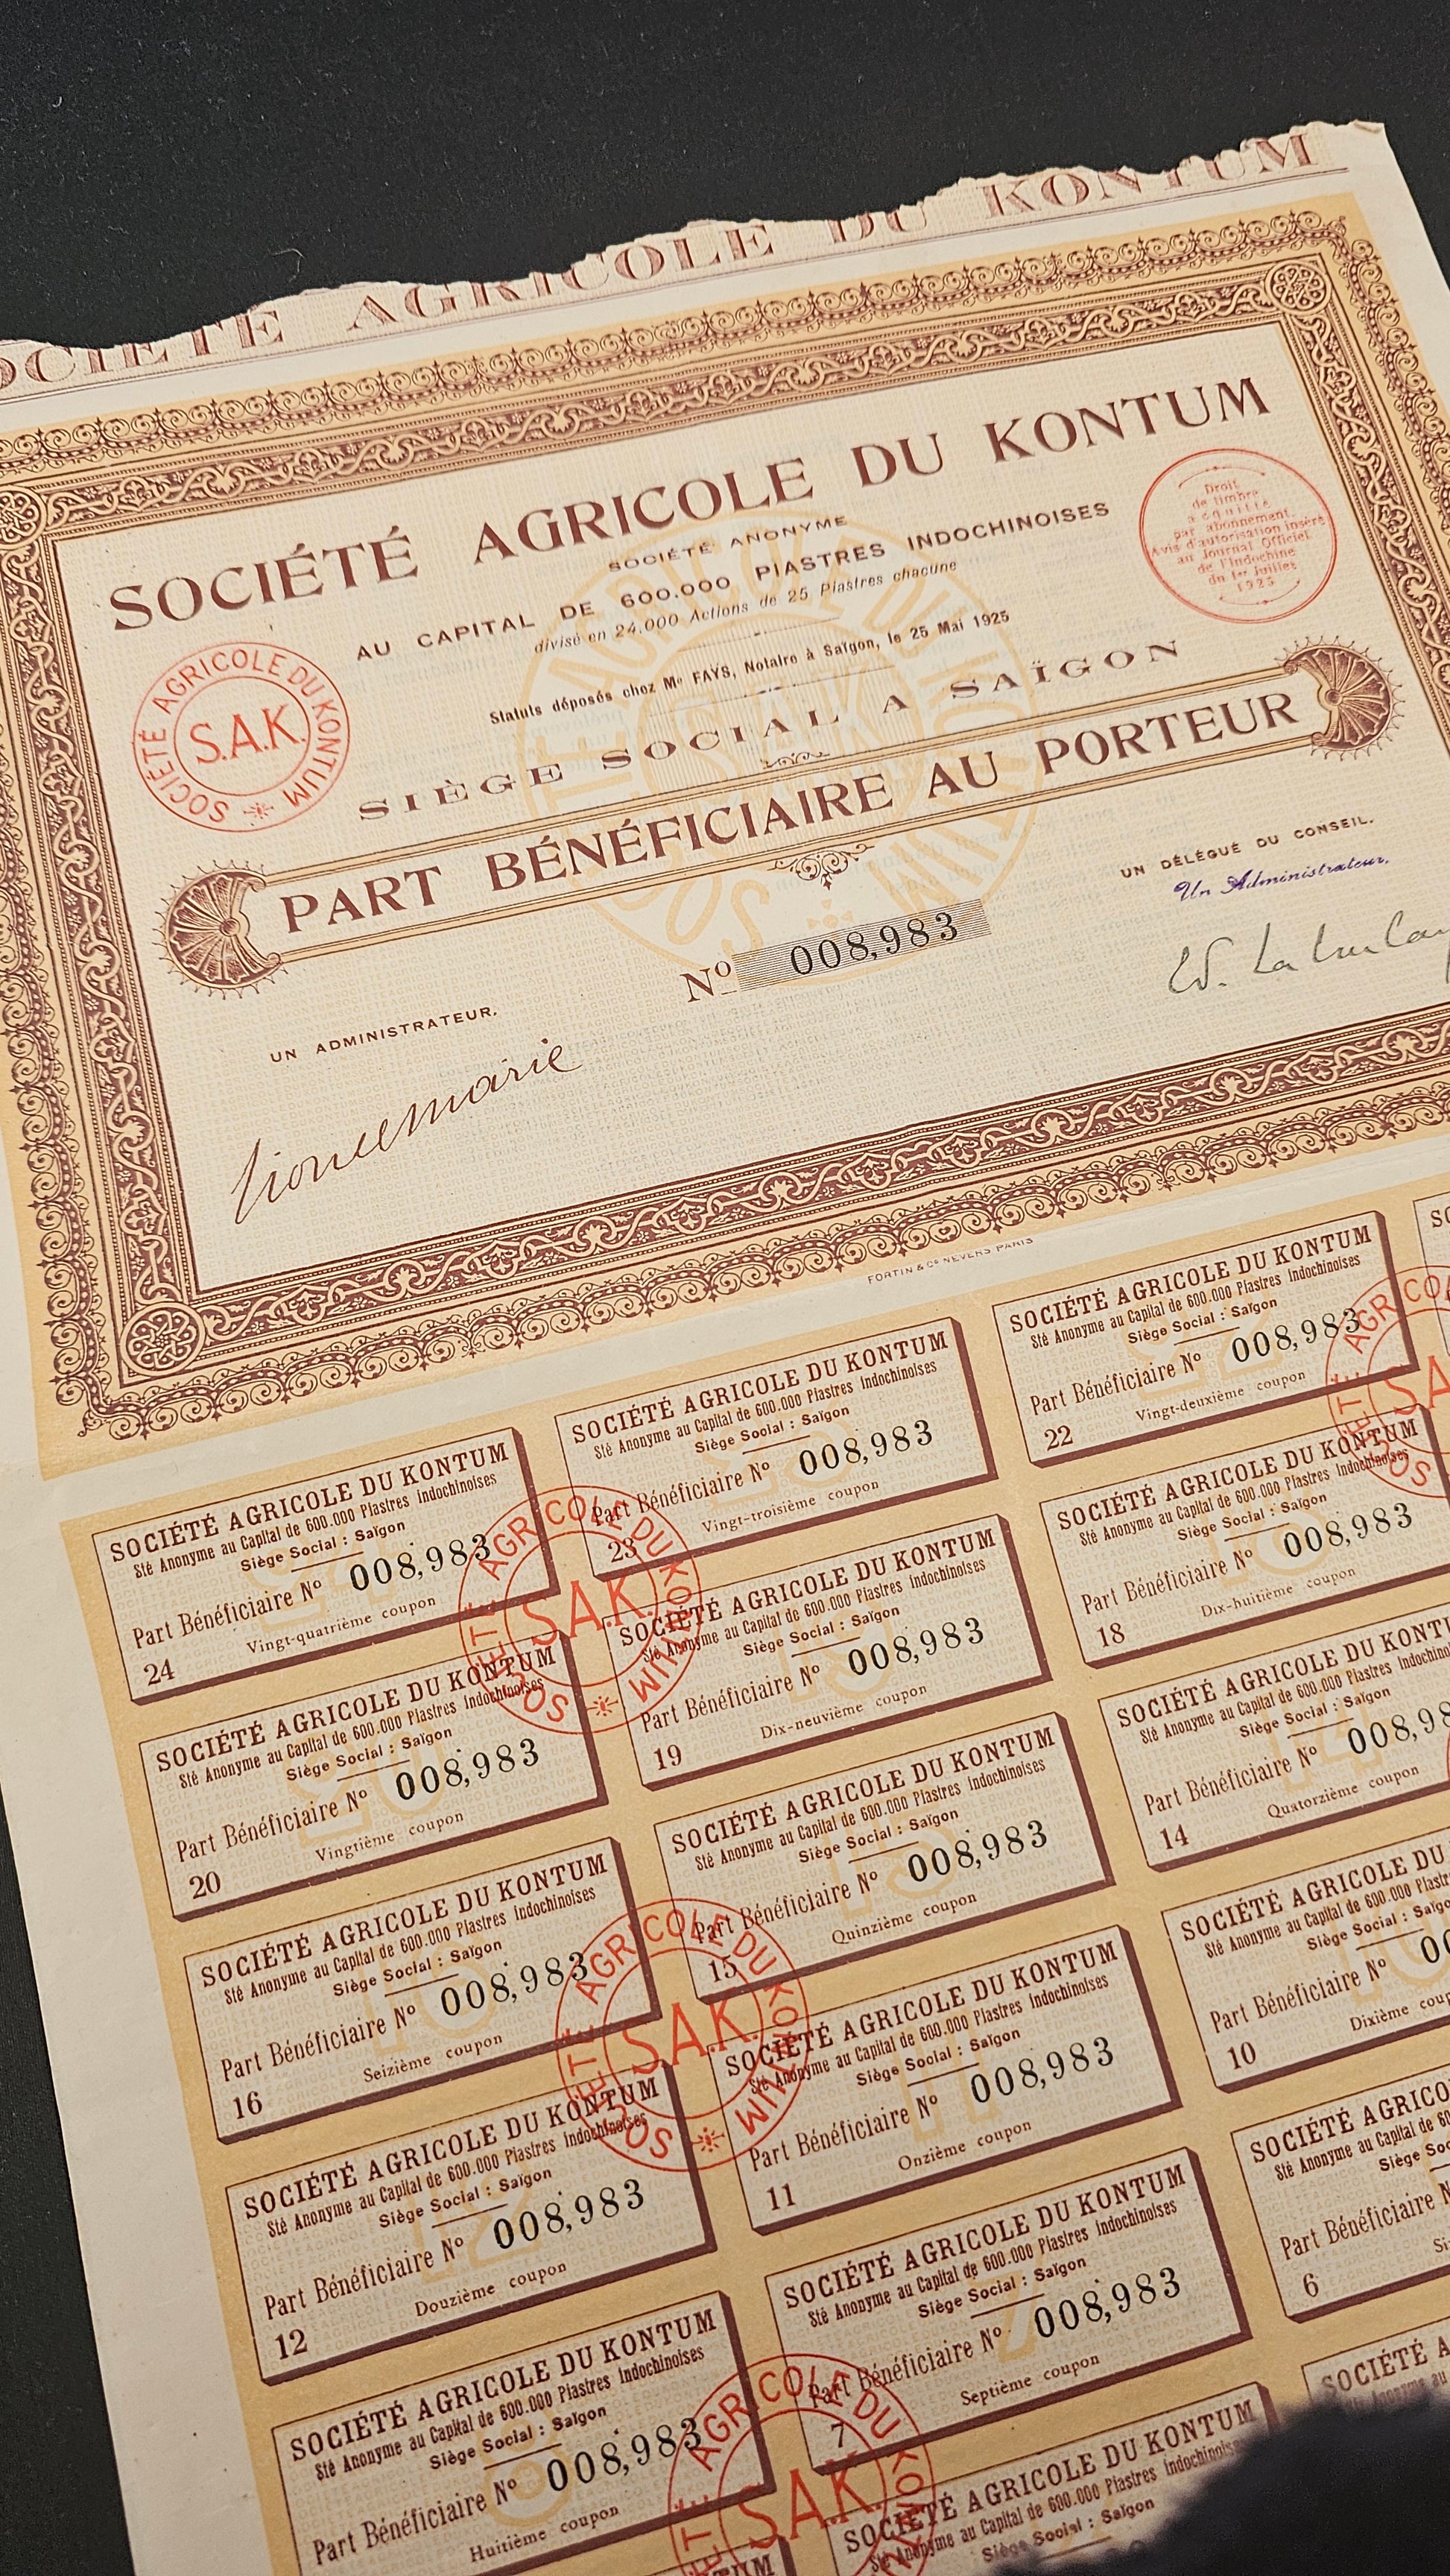 SOCIÉTÉ AGRICOLE DU KONTUM
SOCIÉTÉ AGRICOLE DU KONTUM
SOCIÉTÉ ANONYME
AU CAPITAL DE 600.000 PIASTRES INDOCHINOISES
divisé en 24.000 Actions de 25 Piastres chacune
Statuts déposés chez Me FAYS, Notaire à Saïgon, le 25 Mai 1925
SIÈGE SOCIAL A SAÏGON
PART BÉNÉFICIAIRE AU PORTEUR
Droit
de timbre
acquitté
par abonnement.
Avis d'autorisation inséré
au Journal Officiel
de l'Indochine
du 1er Juillet
1925
SOCIÉTÉ AGRICOLE DU KONTUM
S.A.K.
No 008,983
UN DÉLÉGUÉ DU CONSEIL.
Un Administrateur.
UN ADMINISTRATEUR.
FORTIN & Co NEVERS PARIS
SOCIÉTÉ AGRICOLE DU KONTUM
Sté Anonyme au Capital de 600.000 Piastres Indochinoises
Siège Social : Saïgon
Part Bénéficiaire No 008,983
Vingt-quatrième coupon
24
SOCIÉTÉ AGRICOLE DU KONTUM
Sté Anonyme au Capital de 600.000 Piastres Indochinoises
Siège Social : Saïgon
Part Bénéficiaire No 008,983
Vingt-troisième coupon
23
SOCIÉTÉ AGRICOLE DU KONTUM
Sté Anonyme au Capital de 600.000 Piastres Indochinoises
Siège Social : Saïgon
Part Bénéficiaire No 008,983
Vingt-deuxième coupon
22
SOCIÉTÉ AGRICOLE DU KONTUM
S.A.K.
SOCIÉTÉ AGRICOLE DU KONTUM
Sté Anonyme au Capital de 600.000 Piastres Indochinoises
Siège Social : Saïgon
Part Bénéficiaire No 008,983
Vingtième coupon
20
SOCIÉTÉ AGRICOLE DU KONTUM
Sté Anonyme au Capital de 600.000 Piastres Indochinoises
Siège Social : Saïgon
Part Bénéficiaire No 008,983
Dix-neuvième coupon
19
SOCIÉTÉ AGRICOLE DU KONTUM
Sté Anonyme au Capital de 600.000 Piastres Indochinoises
Siège Social : Saïgon
Part Bénéficiaire No 008,983
Dix-huitième coupon
18
SOCIÉTÉ AGRICOLE DU KONTUM
Sté Anonyme au Capital de 600.000 Piastres Indochinoises
Siège Social : Saïgon
Part Bénéficiaire No 008,983
Seizième coupon
16
SOCIÉTÉ AGRICOLE DU KONTUM
Sté Anonyme au Capital de 600.000 Piastres Indochinoises
Siège Social : Saïgon
Part Bénéficiaire No 008,983
Quinzième coupon
15
SOCIÉTÉ AGRICOLE DU KONTU
Sté Anonyme au Capital de 600.000 Piastres Indochino
Siège Social : Saïgon
Part Bénéficiaire No 008,98
Quatorzième coupon
14
SOCIÉTÉ AGRICOLE DU KONTUM
S.A.K.
SOCIÉTÉ AGRICOLE DU KONTUM
Sté Anonyme au Capital de 600.000 Piastres Indochinoises
Siège Social : Saïgon
Part Bénéficiaire No 008,983
Douzième coupon
12
SOCIÉTÉ AGRICOLE DU KONTUM
Sté Anonyme au Capital de 600.000 Piastres Indochinoises
Siège Social : Saïgon
Part Bénéficiaire No 008,983
Onzième coupon
11
SOCIÉTÉ AGRICOLE DU
Sté Anonyme au Capital de 600.000 Piastr
Siège Social : Saïgo
Part Bénéficiaire No 00
Dixième coup
10
SOCIÉTÉ AGRICOLE DU KONTUM
Sté Anonyme au Capital de 600.000 Piastres Indochinoises
Siège Social : Saïgon
Part Bénéficiaire No 008,983
Huitième coupon
8
SOCIÉTÉ AGRICOLE DU KONTUM
Sté Anonyme au Capital de 600.000 Piastres Indochinoises
Siège Social : Saïgon
Part Bénéficiaire No 008,983
Septième coupon
7
SOCIÉTÉ AGRICO
Sté Anonyme au Capital de 60
Siège Soc
Part Bénéficiaire N
Si
6
SOCIÉTÉ AGRICOLE DU KON
S.A.K.
SOCIÉTÉ AGRICOLE DU KONTUM
Sté Anonyme au Capital de 600.000 Piastres Indochinoise
Siège Social : Saïgon
SOCIÉTÉ A